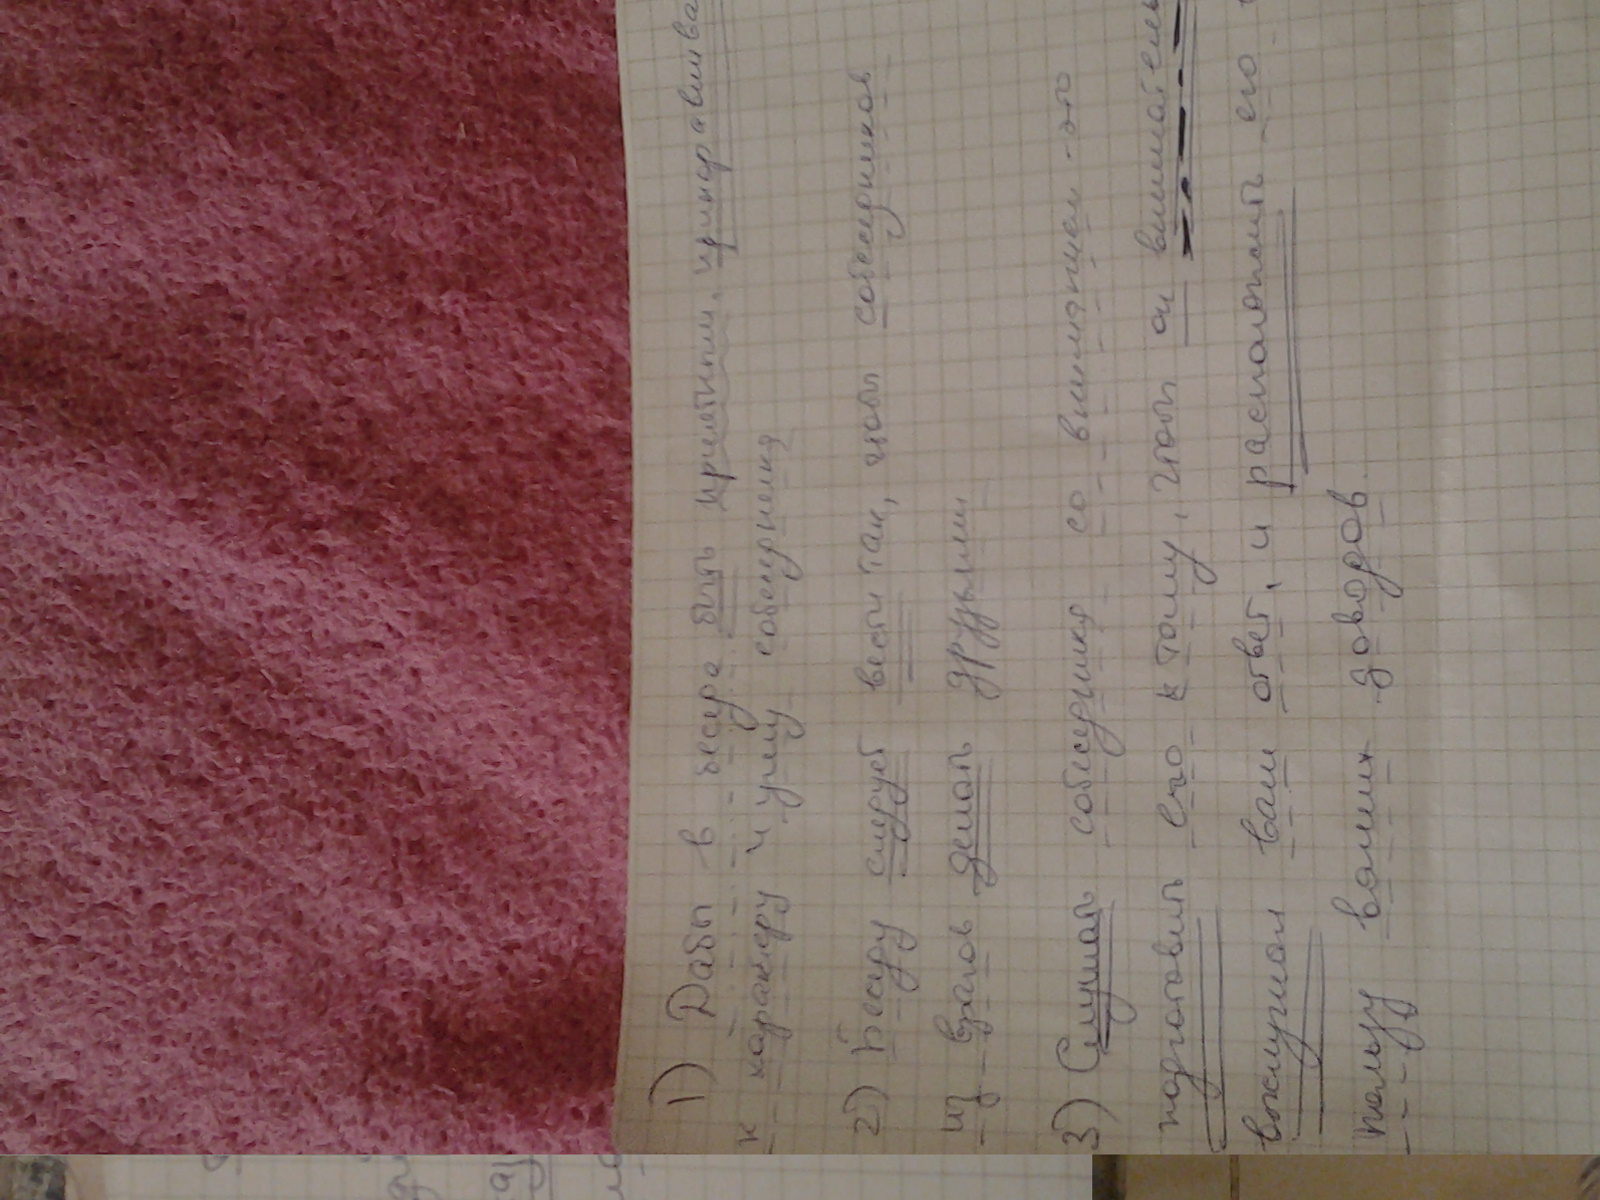 1) Дабы в беседе быть приятным, приноравлива
к характеру и уму собеседника
2) Беседу следует вести так, чтобы собеседников
из врагов делать друзьями.
3) Слушать собеседника со вниманием - это
подготовить его к тому, чтоб он внимательн
выслушал ваш ответ, и расположить его
пользу ваших доводов.